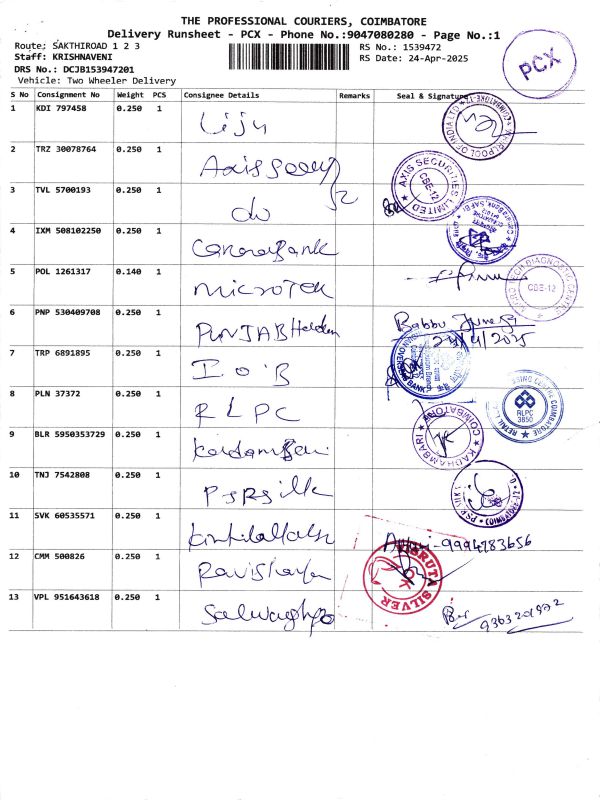 THE PROFESSIONAL COURIERS, COIMBATORE
Delivery Runsheet - PCX - Phone No.:9047080280 - Page No.:1
Route: SAKTHIROAD 1 2 3
Staff: KRISHNAVENI
DRS No.: DCJB153947201
Vehicle: Two Wheeler Delivery
RS No.: 1539472
RS Date: 24-Apr-2025
PCX
S No Consignment No Weight PCS Consignee Details Remarks Seal & Signature
1 KDI 797458 0.250 1 Liju
WHIRLPOOL OF INDIA LTD
2 TRZ 30078764 0.250 1 Axis
AXIS SECURITIES LIMITED CBE-12
3 TVL 5700193 0.250 1 do
4 IXM 508102250 0.250 1 CanaraBank
5 POL 1261317 0.140 1 MICROTEK
DIAGNOSTIC CENTRE CBE-12
6 PNP 530409708 0.250 1 PUNJAB
Babbu Juneja
24/4/2025
7 TRP 6891895 0.250 1 I.O.B
8 PLN 37372 0.250 1 RLPC
RLPC 3850
9 BLR 5950353729 0.250 1
KADHAMBARI COIMBATORE
10 TNJ 7542808 0.250 1 PSRsilk
11 SVK 60535571 0.250 1
9994783656
12 CMM 500826 0.250 1
SILVER
13 VPL 951643618 0.250 1